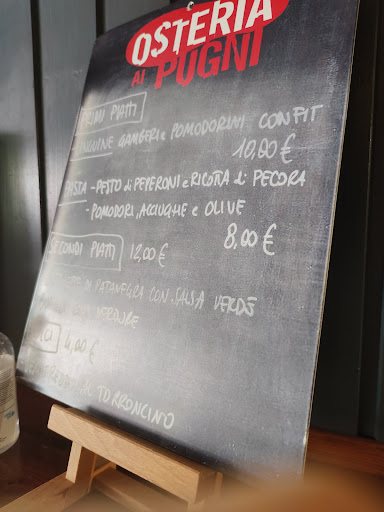 OSTERIA
AI PUGNI
PRIMI PIATTI
LINGUINE GAMBERI e POMODORINI CONFIT
10,00 €
PASTA - PESTO di PEPERONI e RICOTTA di PECORA
- POMODORI, ACCIUGHE e OLIVE
8,00 €
SECONDI PIATTI 12,00 €
DI PATANEGRA CON SALSA VERDE
VERDURE
4,00 €
TORRONCINO